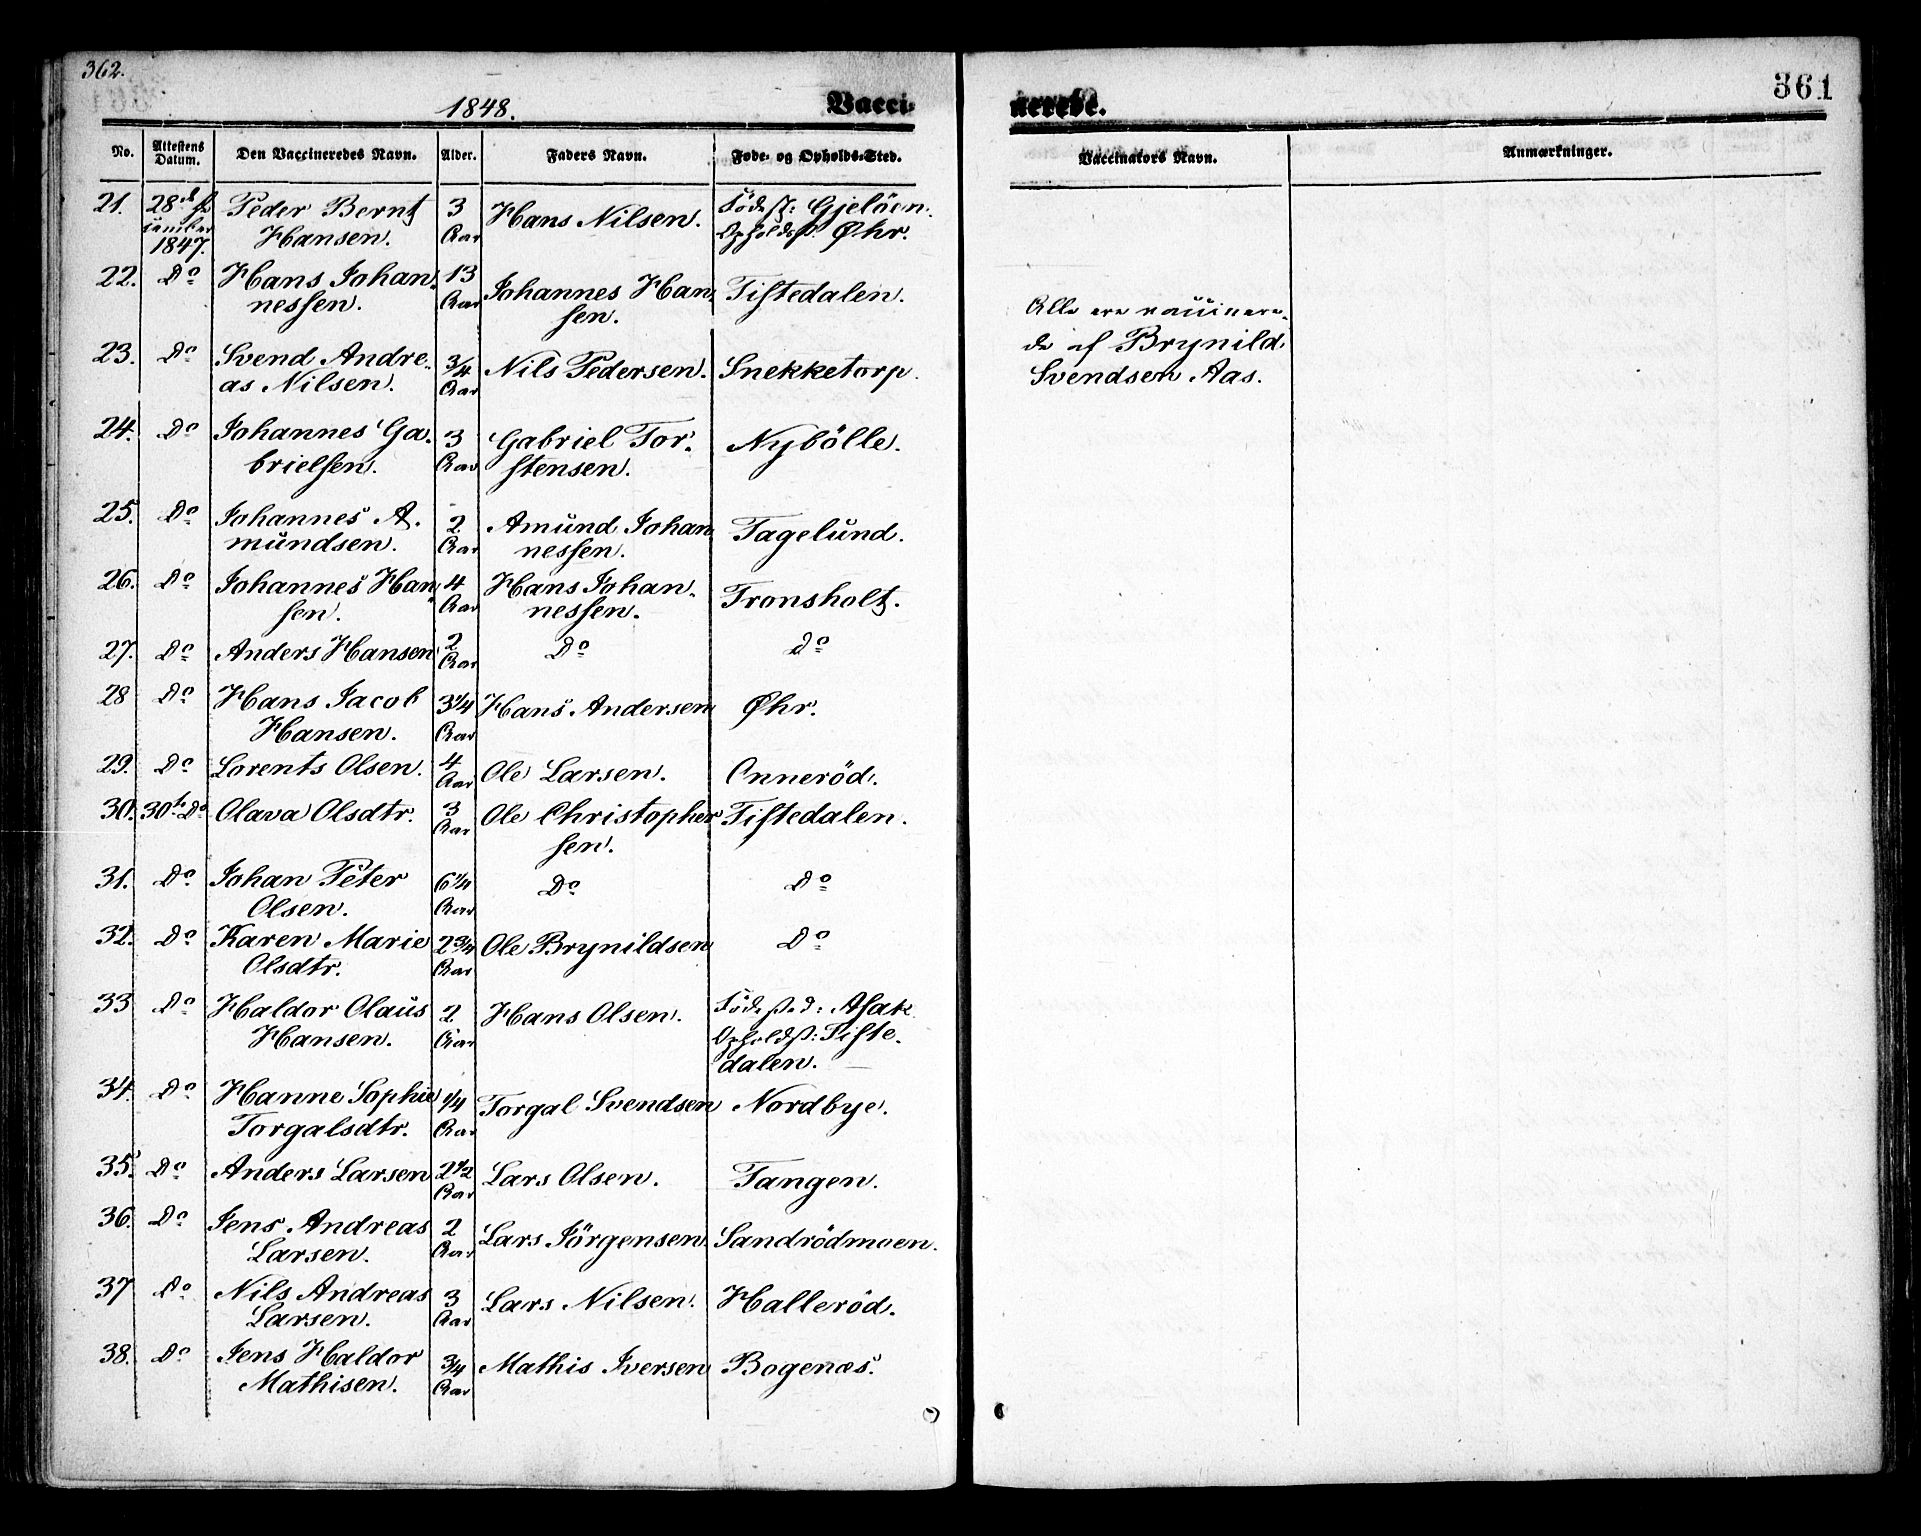 362.
1848.
Vacci-
nerede.
361
No.
Attestens Datum.
Den Vaccineredes Navn.
Alder.
Faders Navn.
Føde- og Opholds-Sted.
Vaccinators Navn.
Anmærkninger.
21. 28de Peder Bernt 3 Hans Nilsen. Födest: Gjelöen.
1847. Hansen. Aar Opholdsst. Øhr.
22. Do Hans Johan- 13 Johannes Han- Tistedalen.
nessen. Aar sen.
23. Do Svend Andre- 3/4 Nils Pedersen. Snekketorp.
as Nilsen. Aar
24. Do Johannes Ga- 3 Gabriel Tor- Nybölle.
brielsen. Aar stensen.
25. Do Johannes A- 2 Amund Johan Fagelund.
mundsen. Aar nessen.
26. Do Johannes Han- 4 Hans Johan- Tronsholt.
sen. Aar nessen.
27. Do Anders Hansen 2 Aar Do do
28 Do Hans Jacob 3 1/4 Hans Andersen Øhr.
Hansen. Aar
29. Do Lorents Olsen. 4 Aar Ole Larsen. Onneröd.
30. 30te Do Olava Olsdtr. 3 Aar Ole Christopher Tistedalen.
sen.
31. Do Johan Peter 6 1/4 Do Do
Olsen. Aar
32. Do Karen Marie 2 3/4 Ole Brynildsen Do
Olsdtr. Aar
33 Do Haldor Olaus 2 Hans Olsen. Födested: Asak
Hansen. Aar Opholdsst: Tiste-
dalen.
34. Do Hanne Sophie 1/4 Torgal Svendsen Nordbye.
Torgalsdtr. Aar
35. Do Anders Larsen 2 1/2 Aar Lars Olsen. Tangen.
36. Do Jens Andreas 2 Lars Jörgensen. Sandrödmoen.
Larsen. Aar
37 Do Nils Andreas 3 Lars Nilsen. Halleröd.
Larsen. Aar
38. Do Jens Haldor 3/4 Mathis Iversen Bogenæs.
Mathisen. Aar
Alle ere vaccinere-
de af Brynild
Svendsen Aas.